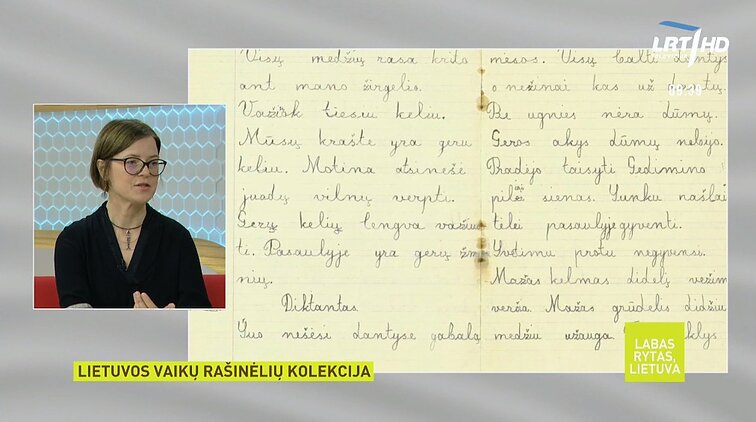 LRT HD
Visų medžių rasa krito
ant mano žirgelio.
Važiok tiesiu keliu.
Mūsų krašte yra gerų
kelių. Motina atsinešė
juodų vilnų verpti.
Gerų kelių lengva važiuo
ti. Pasaulyje yra gerų žmo
nių.
Diktantas.
Šuo nešėsi dantyse gabalą
mėsos. Visų balti dantys
o nežinai kas už
Be ugnies nėra dūmų.
Geros akys dūmų nebijo.
Pradėjo taisyti Gedimino
pilies sienas. Sunku našlai
tėlei pasaulyje gyventi.
Svetimu protu negyvensi.
Mažas kelmas didelį vežimą
verža. Mažas grūdelis didžiu
medžiu užauga.
LABAS
RYTAS,
LIETUVA
LIETUVOS VAIKŲ RAŠINĖLIŲ KOLEKCIJA